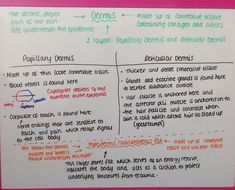 The second, deeper
part of the skin
lies underneath the epidermis
Dermis
made up of connective tissue
containing collagen and fibers
2 layers: Papillary Dermis and Reticular Dermis
Papillary Dermis
- Made up of thin, loose connective tissue
- Blood vessels is found here
nutrients to the epidermis
- Corpuscle of touch is found here
nerve endings that are sensitive to
touch and pain, which relays signals
to the cell body
Reticular Dermis
- Thicker and dense connective tissue
- Glands and exocrine glands is found here
to secrete substance outside
- Hair follicle is anchored here and
the arrector pili muscle is anchored on to
the hair follicle and contract when
skin is cold which allows hair to stand up
(goosebumps)
lies below the dermis
found underneath muscles
Hypodermis
made up of connective tissue
this layer stores fat which serves of an energy reserve,
insulates the body and acts as a cushion to protect
underlying structures from trauma